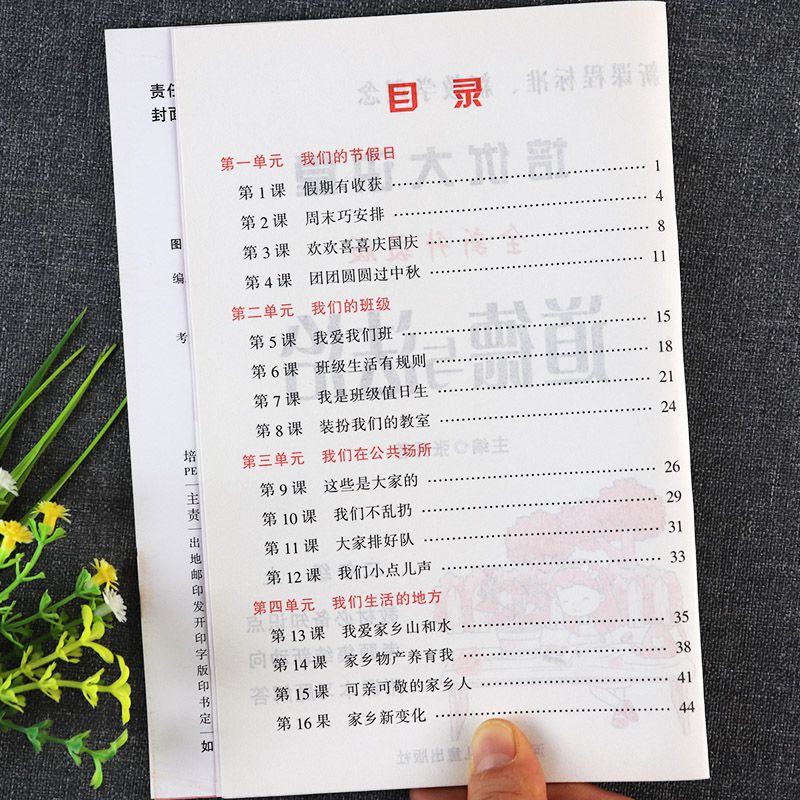 目 录
第一单元 我们的节假日
第 1 课 假期有收获 …… 1
第 2 课 周末巧安排 …… 4
第 3 课 欢欢喜喜庆国庆 …… 8
第 4 课 团团圆圆过中秋 …… 11
第二单元 我们的班级
第 5 课 我爱我们班 …… 15
第 6 课 班级生活有规则 …… 18
第 7 课 我是班级值日生 …… 21
第 8 课 装扮我们的教室 …… 24
第三单元 我们在公共场所
第 9 课 这些是大家的 …… 26
第 10 课 我们不乱扔 …… 29
第 11 课 大家排好队 …… 31
第 12 课 我们小点儿声 …… 33
第四单元 我们生活的地方
第 13 课 我爱家乡山和水 …… 35
第 14 课 家乡物产养育我 …… 38
第 15 课 可亲可敬的家乡人 …… 41
第 16 果 家乡新变化 …… 44
责任
封面
图
编
考
培
PE
主
责
出
地
邮
印
发
开
印
字
版
印
书
定
如